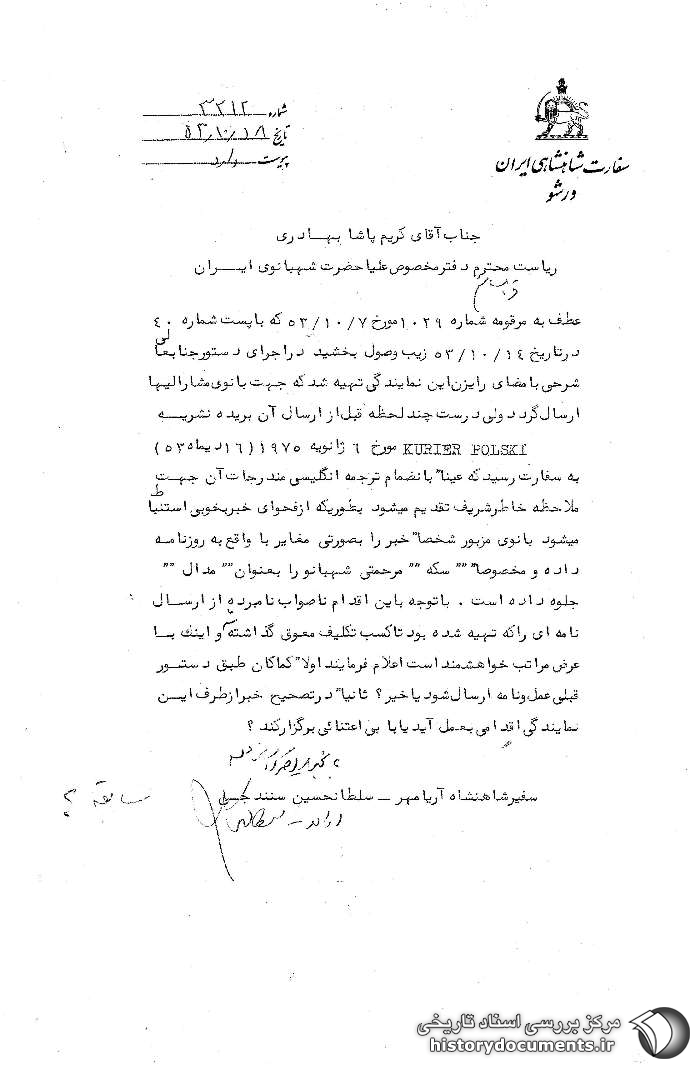 شماره ۳۳۱۲
تاریخ ۵۳/۱۰/۱۸
پیوست دارد
سفارت شاهنشاهی ایران
ورشو
جناب آقای کریم پاشا بهادری
ریاست محترم دفتر مخصوص علیاحضرت شهبانوی ایران
عطف به مرقومه شماره ۱۰۲۹ مورخ ۵۳/۱۰/۷ که با پست شماره ۴۰
در تاریخ ۵۳/۱۰/۱۴ زیب وصول بخشید در اجرای دستور جنابعالی
شرحی بامضای رایزن این نمایندگی تهیه شد که جهت بانوی مشارالیها
ارسال گردد ولی درست چند لحظه قبل از ارسال آن بریده نشریه
KURIER POLSKI مورخ ۶ ژانویه ۱۹۷۵ (۱۶ دیماه ۵۳)
به سفارت رسید که عینا" با نضمام ترجمه انگلیسی مندرجات آن جهت
ملاحظه خاطر شریف تقدیم میشود بطوریکه از فحوای خبر بخوبی استنباط
میشود بانوی مزبور شخصا" خبر را بصورتی مغایر با واقع به روزنامه
داده و مخصوصا" "" سکه "" مرحمتی شهبانو را بعنوان "" مدال ""
جلوه داده است . با توجه باین اقدام ناصواب نامبرده از ارسال
نامه ای را که تهیه شده بود تا کسب تکلیف معوق گذاشته و اینک با
عرض مراتب خواهشمند است اعلام فرمایند اولا" کماکان طبق دستور
قبلی عمل و نامه ارسال شود یا خیر ؟ ثانیا" در تصحیح خبر از طرف این
نمایندگی اقدامی بعمل آید یا با بی اعتنائی برگزار کند ؟
سفیر شاهنشاه آریامهر - سلطانحسین سنندجی
سابقه ؟
مرکز بررسی اسناد تاریخی
historydocuments.ir